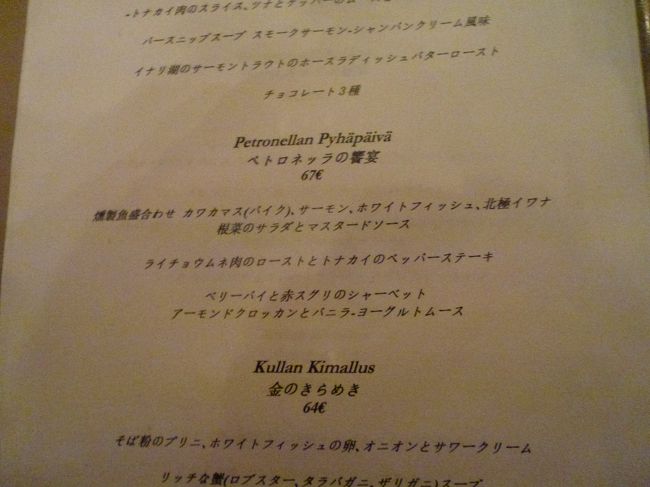 -トナカイ肉のスライス、ツナとケッパーの
パースニップスープ スモークサーモン-シャンパンクリーム風味
イナリ湖のサーモントラウトのホースラディッシュバターロースト
チョコレート3種
Petronellan Pyhäpäivä
ペトロネッラの饗宴
67€
燻製魚盛合わせ カワカマス(パイク)、サーモン、ホワイトフィッシュ、北極イワナ
根菜のサラダとマスタードソース
ライチョウムネ肉のローストとトナカイのペッパーステーキ
ベリーパイと赤スグリのシャーベット
アーモンドクロッカンとバニラ-ヨーグルトムース
Kullan Kimallus
金のきらめき
64€
そば粉のブリニ、ホワイトフィッシュの卵、オニオンとサワークリーム
リッチな蟹(ロブスター、タラバガニ、ザリガニ)スープ